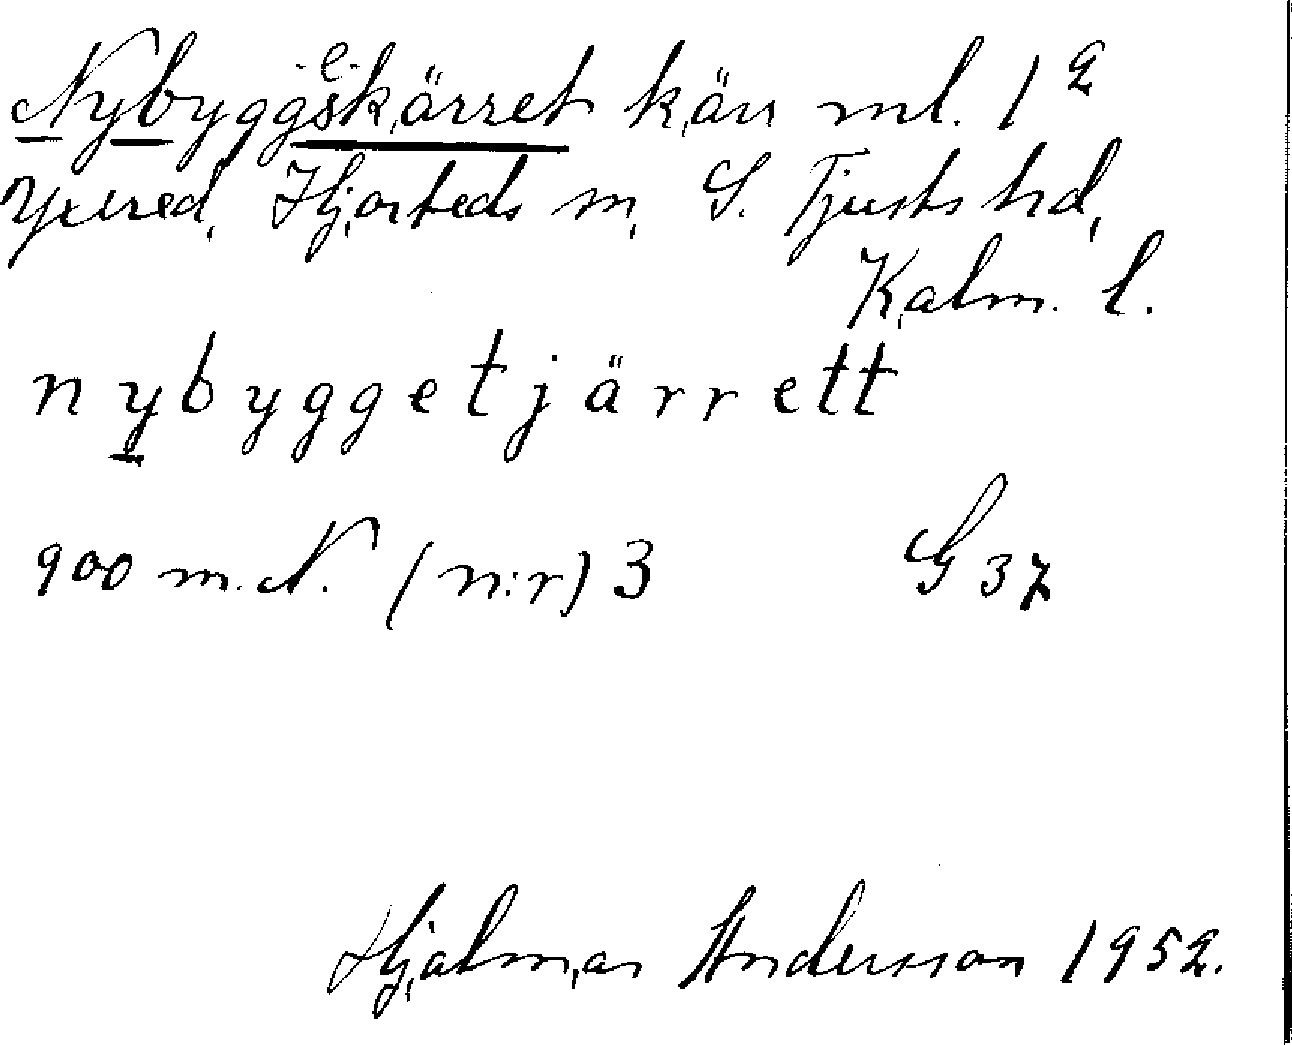 Nybyggeskärret kärr ml. 1²
Yxered, Hjorteds sn, S. Tjusts hd,
Kalm. l.
nybyggetjärrett
900 m. N. (n:r) 3 G 37
Hjalmar Andersson 1952.